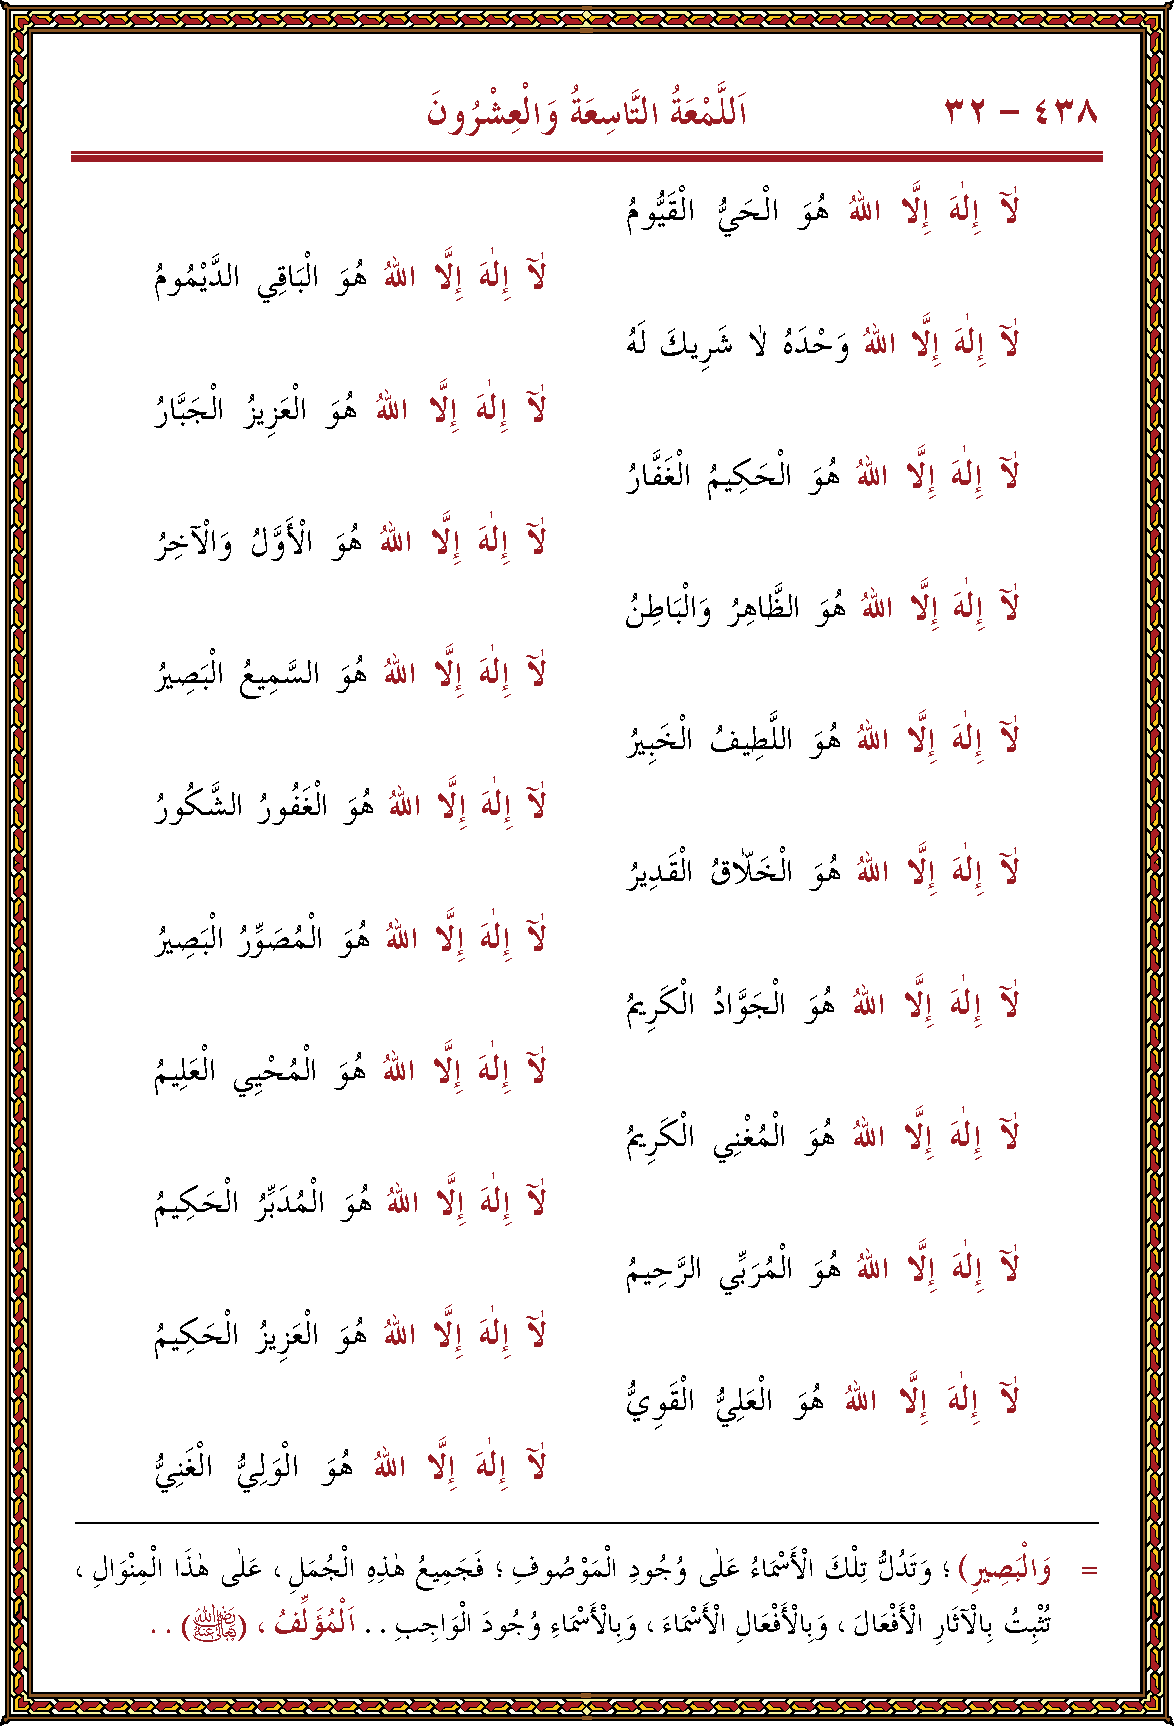 ٤٣٨ – ٣٢ اَللَّمْعَةُ التَّاسِعَةُ وَالْعِشْرُونَ
لَآ إِلٰهَ إِلَّا اللهُ هُوَ الْحَيُّ الْقَيُّومُ
لَآ إِلٰهَ إِلَّا اللهُ هُوَ الْبَاقِي الدَّيْمُومُ
لَآ إِلٰهَ إِلَّا اللهُ وَحْدَهُ لَا شَرِيكَ لَهُ
لَآ إِلٰهَ إِلَّا اللهُ هُوَ الْعَزِيزُ الْجَبَّارُ
لَآ إِلٰهَ إِلَّا اللهُ هُوَ الْحَكِيمُ الْغَفَّارُ
لَآ إِلٰهَ إِلَّا اللهُ هُوَ الْأَوَّلُ وَالْآخِرُ
لَآ إِلٰهَ إِلَّا اللهُ هُوَ الظَّاهِرُ وَالْبَاطِنُ
لَآ إِلٰهَ إِلَّا اللهُ هُوَ السَّمِيعُ الْبَصِيرُ
لَآ إِلٰهَ إِلَّا اللهُ هُوَ اللَّطِيفُ الْخَبِيرُ
لَآ إِلٰهَ إِلَّا اللهُ هُوَ الْغَفُورُ الشَّكُورُ
لَآ إِلٰهَ إِلَّا اللهُ هُوَ الْخَلَّاقُ الْقَدِيرُ
لَآ إِلٰهَ إِلَّا اللهُ هُوَ الْمُصَوِّرُ الْبَصِيرُ
لَآ إِلٰهَ إِلَّا اللهُ هُوَ الْجَوَّادُ الْكَرِيمُ
لَآ إِلٰهَ إِلَّا اللهُ هُوَ الْمُحْيِي الْعَلِيمُ
لَآ إِلٰهَ إِلَّا اللهُ هُوَ الْمُغْنِي الْكَرِيمُ
لَآ إِلٰهَ إِلَّا اللهُ هُوَ الْمُدَبِّرُ الْحَكِيمُ
لَآ إِلٰهَ إِلَّا اللهُ هُوَ الْمُرَبِّي الرَّحِيمُ
لَآ إِلٰهَ إِلَّا اللهُ هُوَ الْعَزِيزُ الْحَكِيمُ
لَآ إِلٰهَ إِلَّا اللهُ هُوَ الْعَلِيُّ الْقَوِيُّ
لَآ إِلٰهَ إِلَّا اللهُ هُوَ الْوَلِيُّ الْغَنِيُّ
= وَالْبَصِيرِ) ؛ وَتَدُلُّ تِلْكَ الْأَسْمَاءُ عَلٰى وُجُودِ الْمَوْصُوفِ ؛ فَجَمِيعُ هٰذِهِ الْجُمَلِ ، عَلٰى هٰذَا الْمِنْوَالِ ،
تُثْبِتُ بِالْآثَارِ الْأَفْعَالَ ، وَبِالْأَفْعَالِ الْأَسْمَاءَ ، وَبِالْأَسْمَاءِ وُجُودَ الْوَاجِبِ . . اَلْمُؤَلِّفُ ، (رضي الله عنه) . .